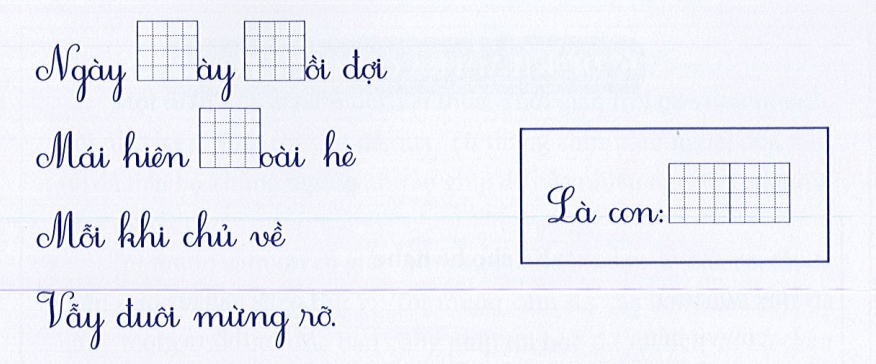 Ngày ày ồi đợi
Mái hiên oài hè
Mỗi khi chủ về
Vẫy đuôi mừng rỡ.
Là con: